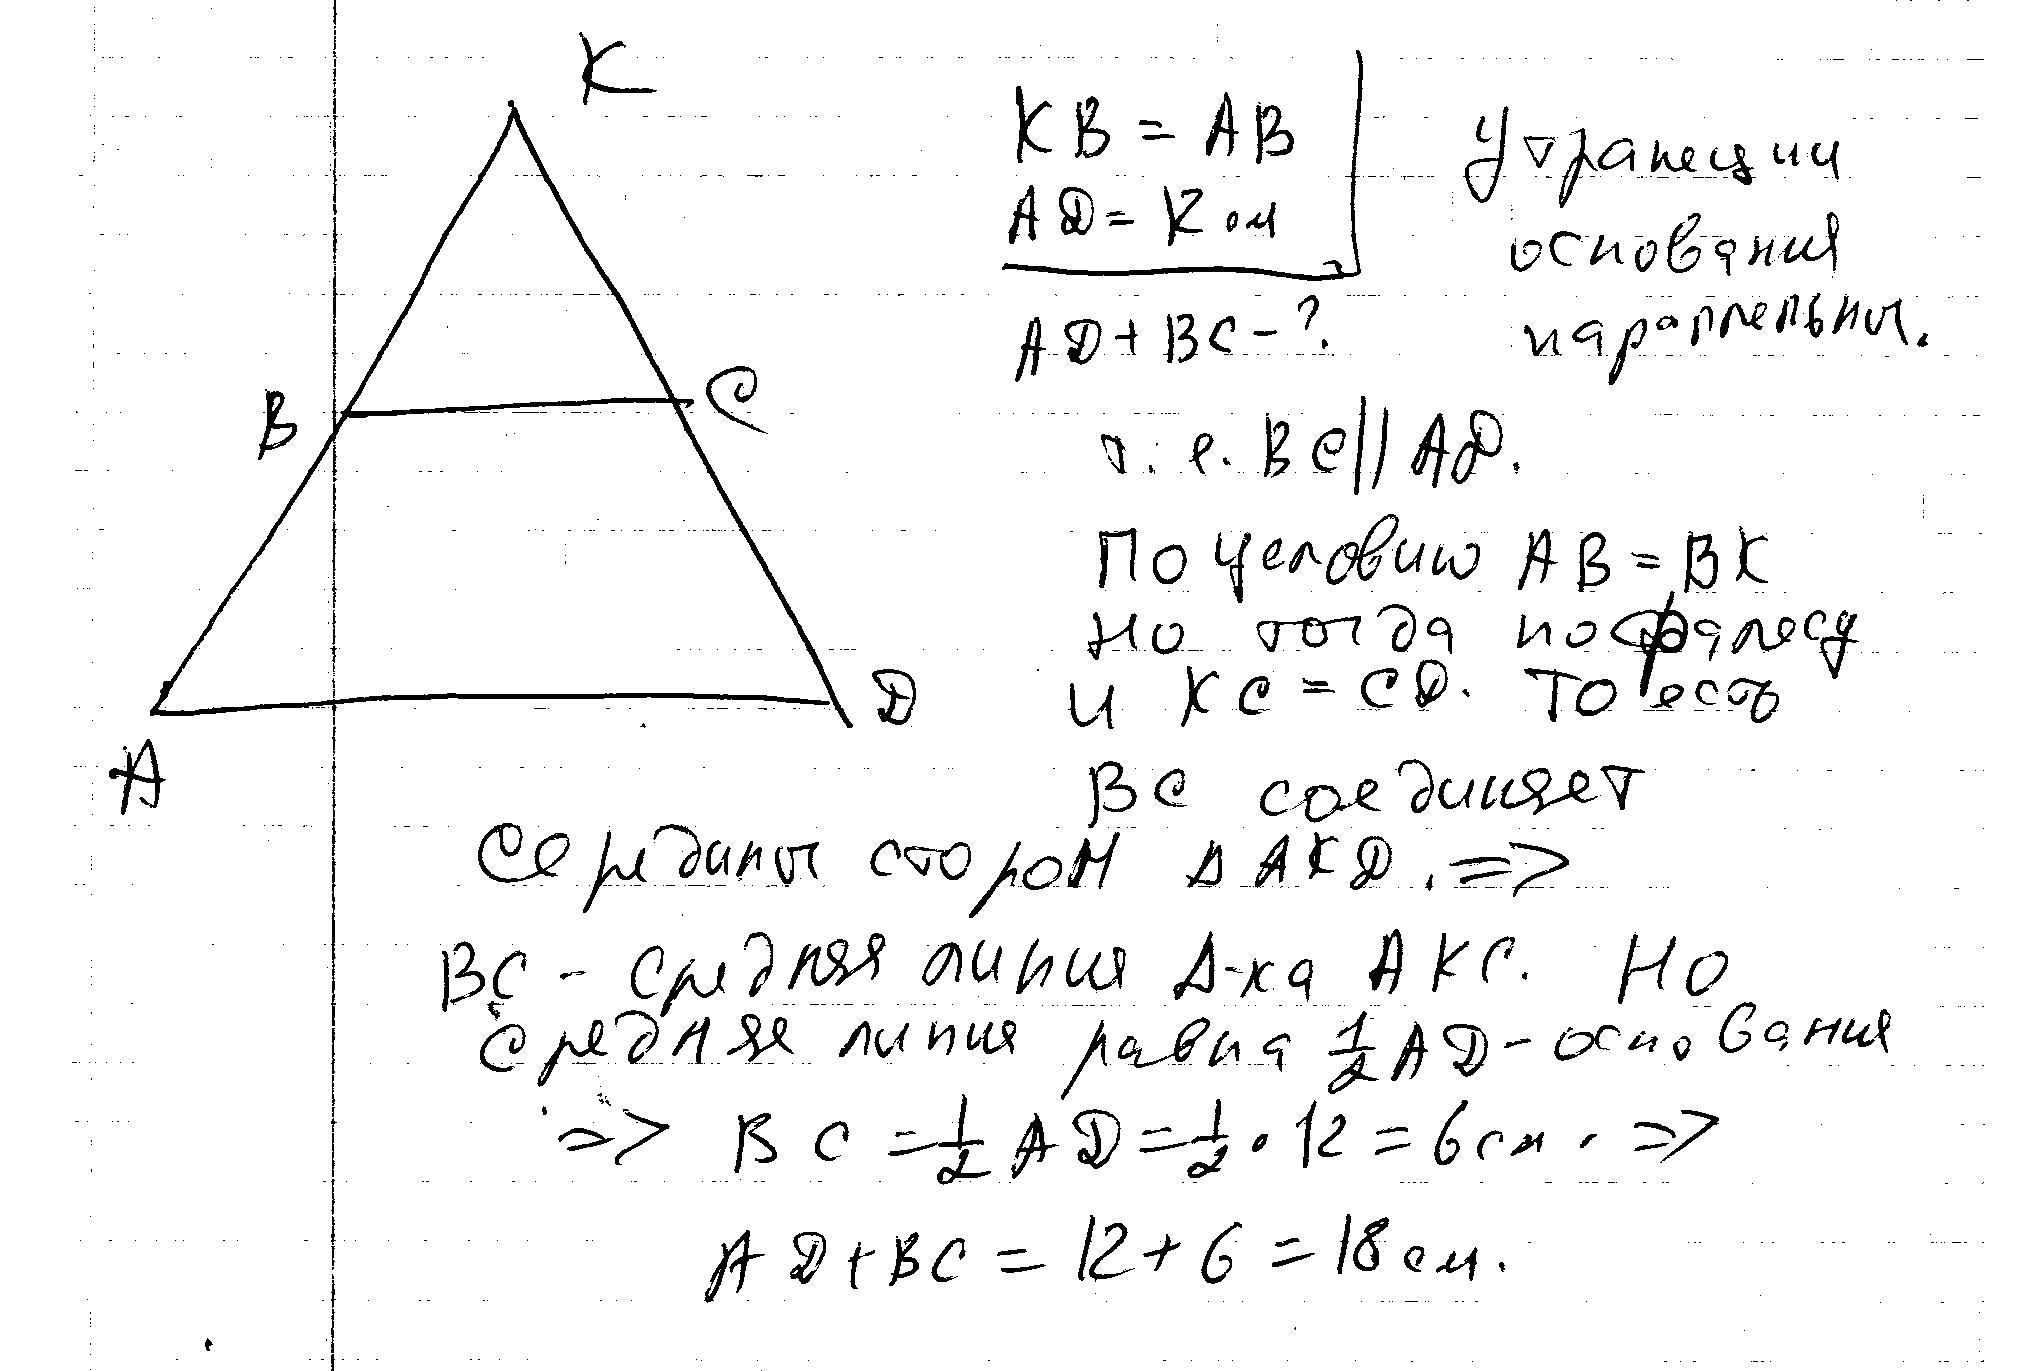 K
KB = AB
AD = 12 см
AD + BC - ?
У трапеции
основания
параллельны.
B
C
т. е. BC || AD.
По условию AB = BK
Но тогда по Фалесу
и KC = CD. То есть
A
D
BC соединяет
середины сторон Δ AKD. =>
BC - средняя линия Δ-ка AKC. Но
средняя линия равна 1/2 AD - основания
=> BC = 1/2 AD = 1/2 · 12 = 6 см. =>
AD + BC = 12 + 6 = 18 см.